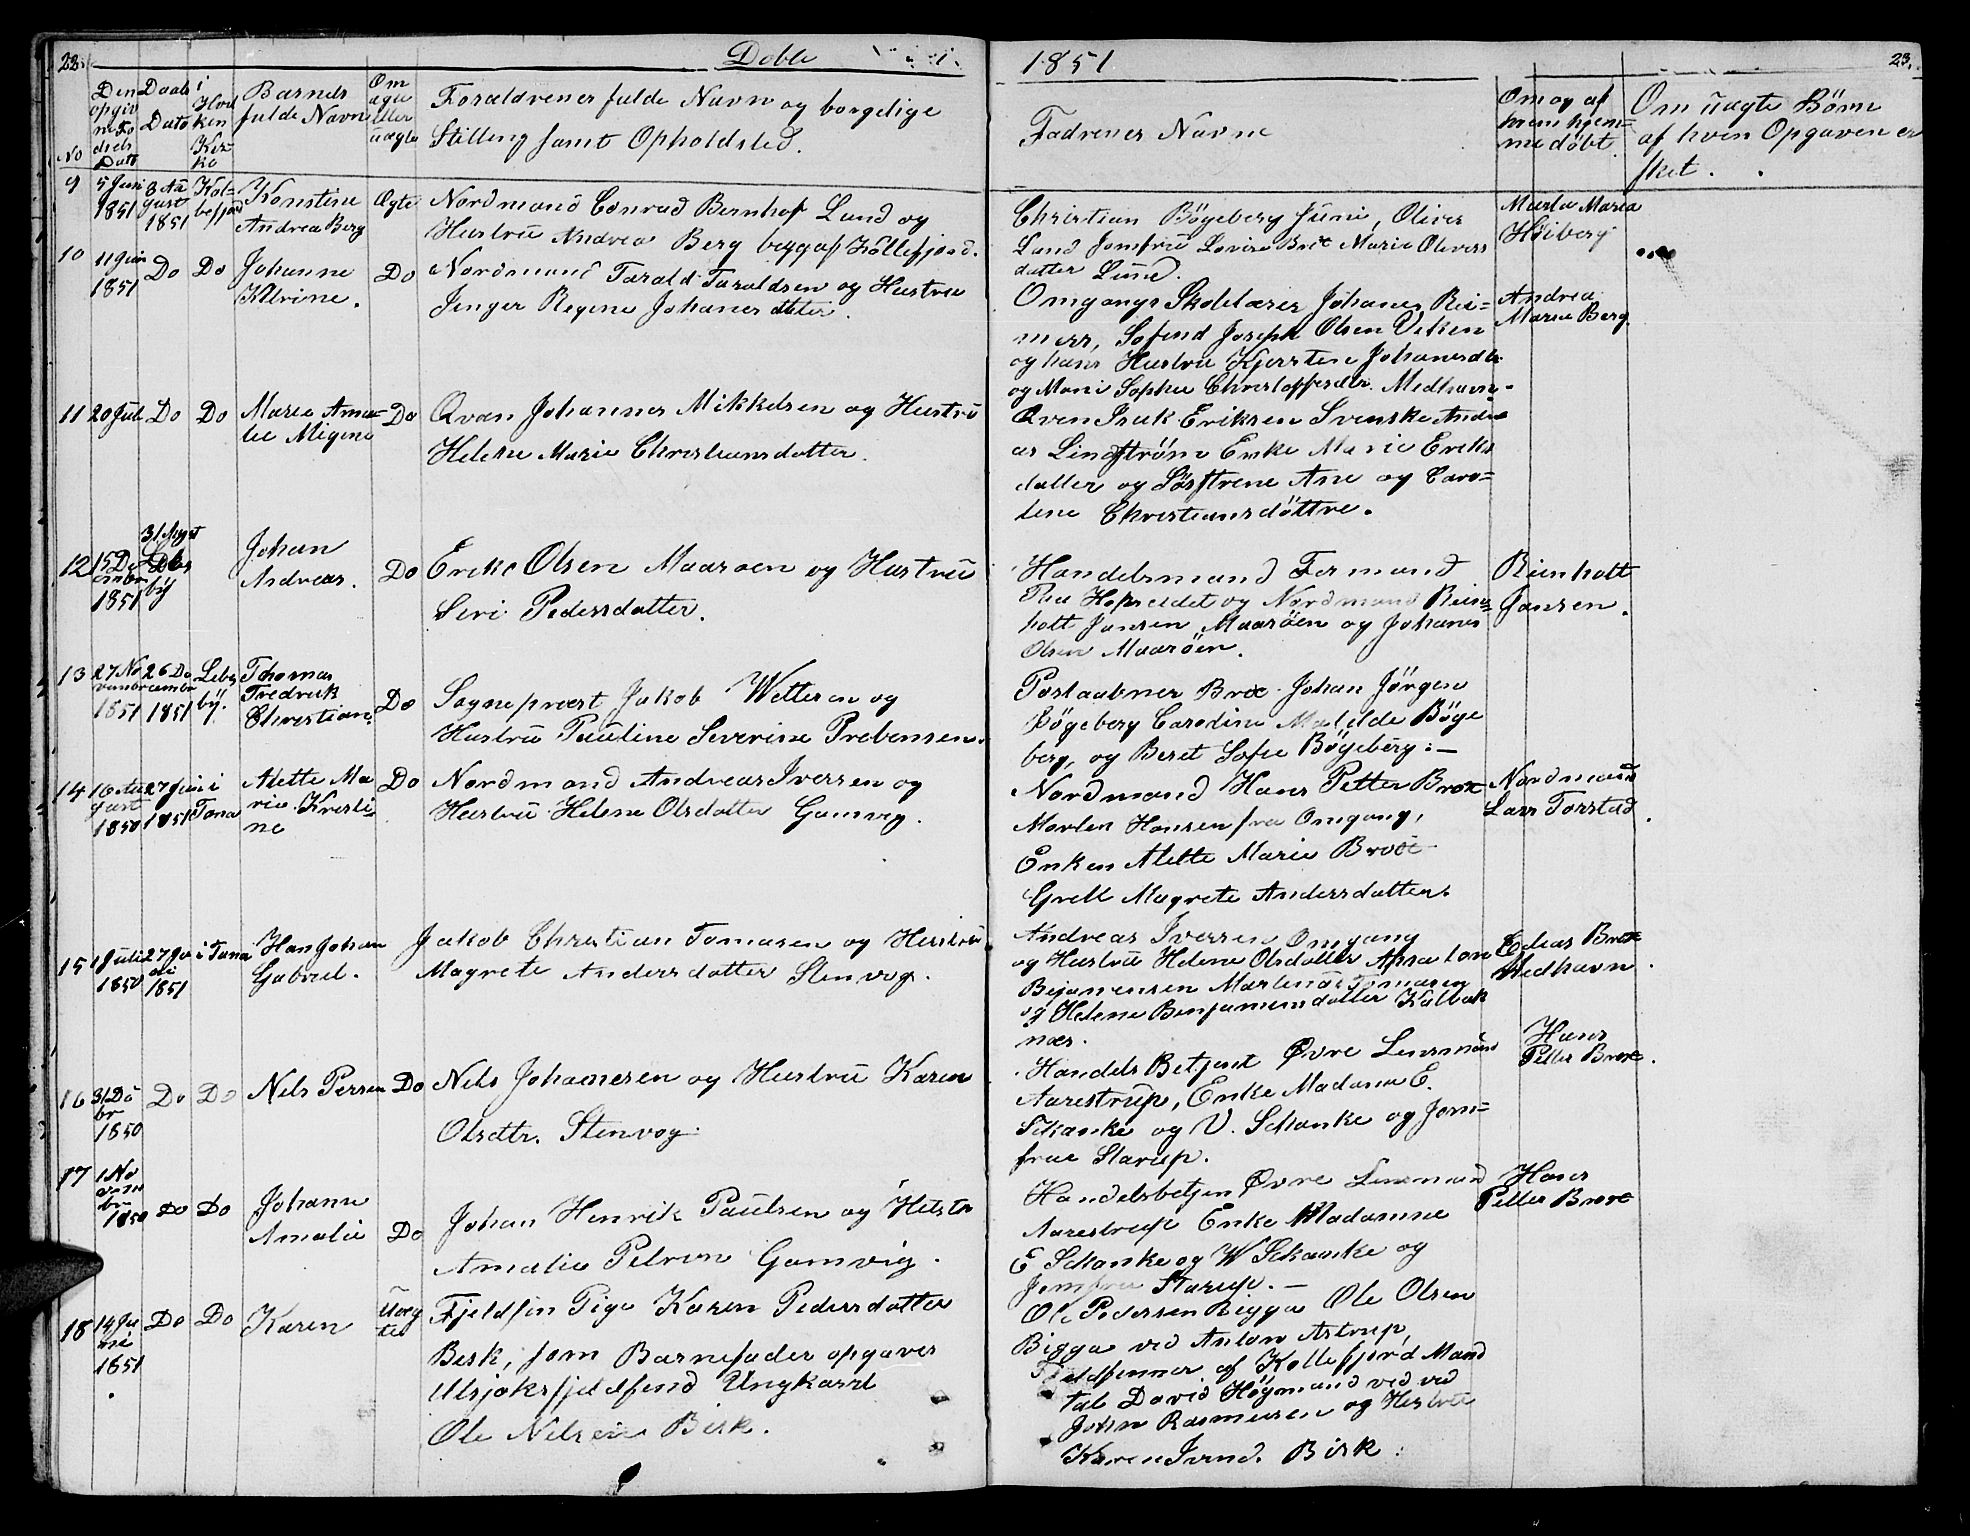 22.
Døbte
1851
23.
No
Den opgivne Fødsels Dato
Daabs Dato
i Hvilken Kirke
Barnets fulde Navn
Om ægte eller uægte
Forældrenes fulde Navn og borgelige
Stilling samt Opholdsted.
Fadrenes Navne
Om og af hvem hjemmedøbt.
Om uægte Börn
af hvem Opgaven er
sket.
9
5 Juni 1851
3 August 1851
Kolbefjord
Konstine
Andrea Berg
Ægte
Nordmand Conrad Bernhof Lund og
Hustru Andrea Berg begge af Kollefjord.
Christian Bögeberg Juni, Oliver
Lund Jomfru Lovise Marie Olivers
datter Lund.
Marta Maria
Höiberg
10
11 Juni 1851
Do
Do
Johanne
Katrine.
Do
Nordmand Tarald Taraldsen og Hustru
Inger Regine Johanesdatter.
Omgangs Skolelærer Johanes Rei=
mers, Sofend Joseph Olsen Veken
og hans Hustru Kjerstine Johanesdtr
og Marie Sophie Christoffersdtr. Medhavn.
Andrea
Marie Berg.
11
20 Juli
Do
Do
Marie Ama=
lie Migine
Do
Qvæn Johannes Mikkelsen og Hustru
Helene Marie Christiansdatter.
Qven Isak Eriksen Svenske Andre
as Lindström Enke Marie Eriks
datter og Söstrene Ane og Caro=
line Christiansdöttre.
12
15 December 1851
31 August
Lebesby
Johan
Andreas.
Do
Erike Olsen Maarøen og Hustru
Siri Pedersdatter.
Handelsmand Fermand
Hopseidet og Nordmand Rein=
hott Jansen Maaröen og Johanes
Olsen Maaröen.
Rienhott
Jansen.
13
27 November 1851
26 December 1851
Lebesby.
Thomas
Fredrik
Christian.
Do
Sognepræst Jakob Wettesen og
Hustru Pauline Severine Prebensen.
Postaabner Brox Johan Jörgen
Bögeberg Carodine Matilde Böge
berg, og Beret Sofie Bögeberg:—
14
16 August 1850
27 Juni 1851
i Tana
Alette Ma
rie Kristi=
ne
Do
Nordmand Andreas Iversen og
Hustru Helene Olsdatter Gamvig.
Nordmand Hans Petter Brox
Morten Hansen fra Omgang,
Enken Alette Marie Brox
Grell Magrete Andersdatter.
Nordmand
Lars Torstad.
15
1 Juli 1850
27 Juni 1851
i Tana
Hans Johan
Gabriel.
Jakob Christian Tomasen og Hustru
Magrete Andersdatter Stenvog.
Andreas Iversen Omgang
og Hustru Helene Olsdatter Absalon
Bejamensen Martinus Tomasen
og Helene Benjamensdatter Kalbak
næs.
Edias Brox
Medhavn.
16
31 Dcbr 1850
Do
Do
Nels Persen
Do
Nels Johanesen og Hustru Karen
Olsdtr. Stenvog.
Handels Betjent Øvre Lensmand
Aarestrup, Enke Madame E.
Schanke og V. Schanke og Jom=
frue Starup.
Hans
Petter Brox.
17
1 November 1850
Do
Do
Johane
Amalie
Do
Johan Henrik Paulsen og Hustr
Amalie Petrine Gamvig.
Handelsbetjen Øvre Lensmand
Aarestrup Enke Madamme
E Schanke og W Schanke og
Jomfrue Starup.—
Hans
Petter Brox
18
14 Juni 1851
Do
Do
Karen
Uægte
Fjeldfin Pige Karen Pedersdatter
Besk, som Barnefader opgaves
Ungkarl
Ole Nelsen Birk.
Ole Pedersen Bigga Ole Olsen
Bigga ved Anton Astrup,
Fjeldfinner af Kollefjord Mand
tal David Högmand ved ved
John Rasmusen og Hustru
Karen Birk.